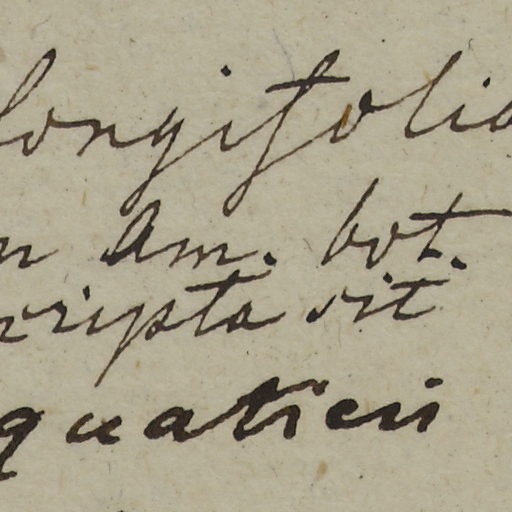 longifolia
n Am. bot.
cripta sit
quaticii